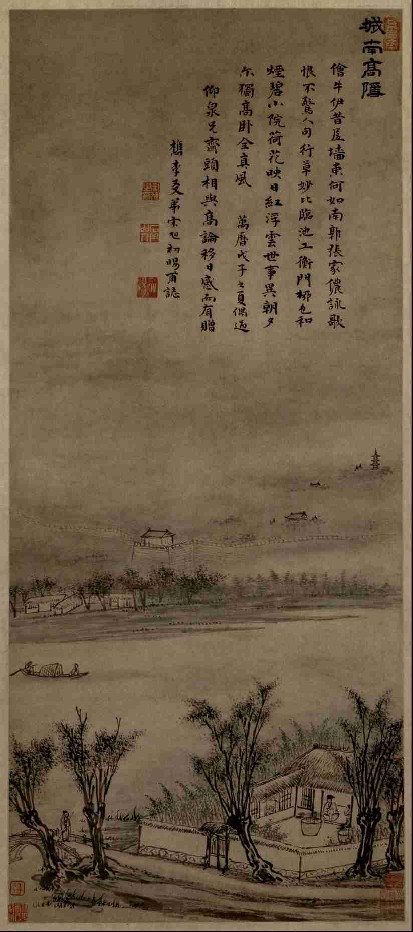 城南高隱
儈牛伊昔居墻東何如南郭張家儂詠歌
恨不驚人句行草妙比臨池工衡門柳色和
煙碧小院荷花映日紅浮雲世事異朝夕
尔獨高卧全真風 萬曆戊子之夏偶過
仰泉兄齋頭相與高論移日感而有贈
檇李友弟宋旭初暘甫誌